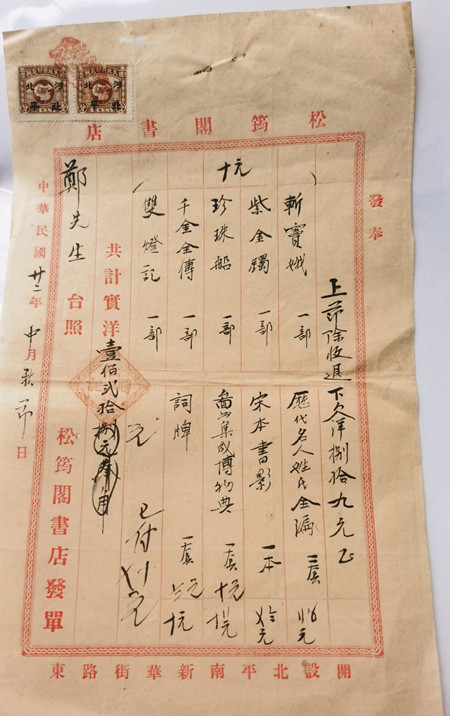 松筠閣書店
發奉
上節除收退下欠洋捌拾九元正
斬竇娥 一部
歷代名人姓氏全編 一套
紫金鐲 一部
宋本書影 一本
珍珠船 一部
圖書集成博物典 一套 十元
千金全傳 一部
詞牌 一套
雙燈記 一部
十元
共計實洋壹佰貳拾捌元
已付
鄭先生 台照
松筠閣書店發單
中華民國廿二年 中月秋節日
開設北平南新華街路東
河北
北平
河北
北平